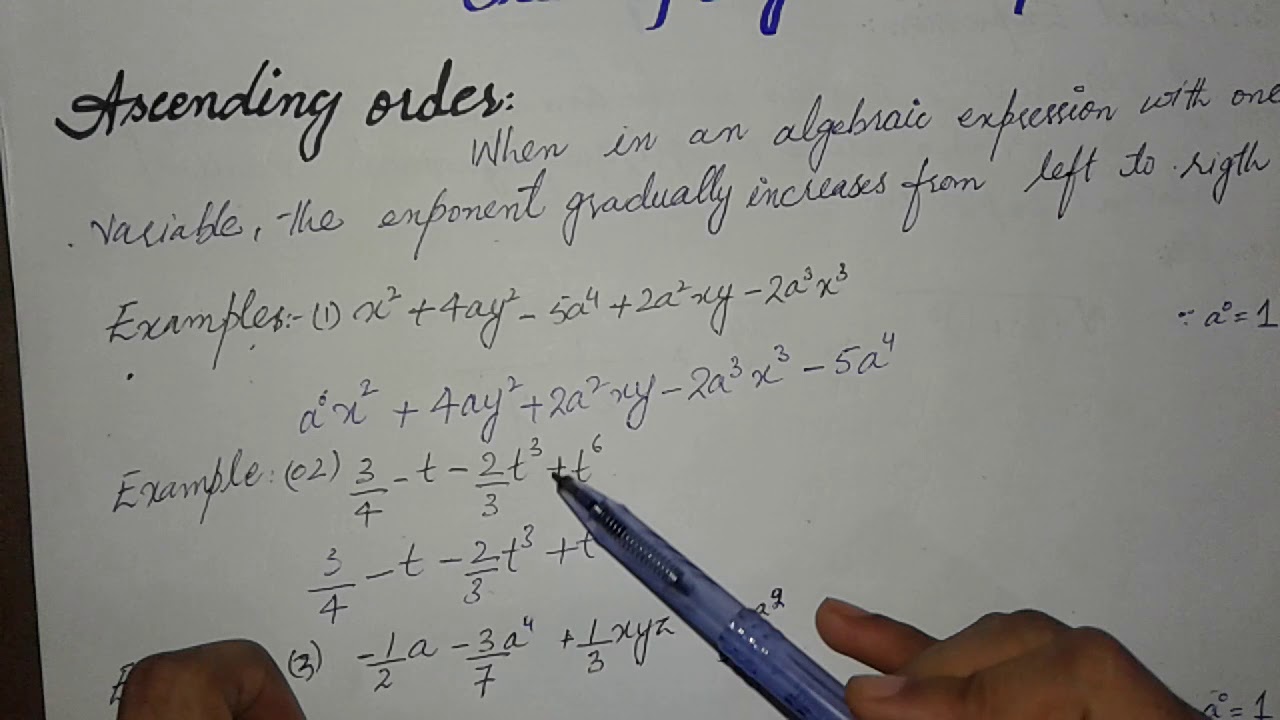 Ascending order:
When in an algebraic expression with one
variable, the exponent gradually increases from left to rigth
Examples:- (1) x² + 4ay² - 5a⁴ + 2a²xy - 2a³x³
∵ a⁰ = 1
a⁰x² + 4ay² + 2a²xy - 2a³x³ - 5a⁴
Example: (02) 3/4 - t - 2/3 t³ + t⁶
3/4 - t - 2/3 t³ + t
(3) -1/2 a - 3/7 a⁴ + 1/3 xyz a⁹
a⁰ = 1